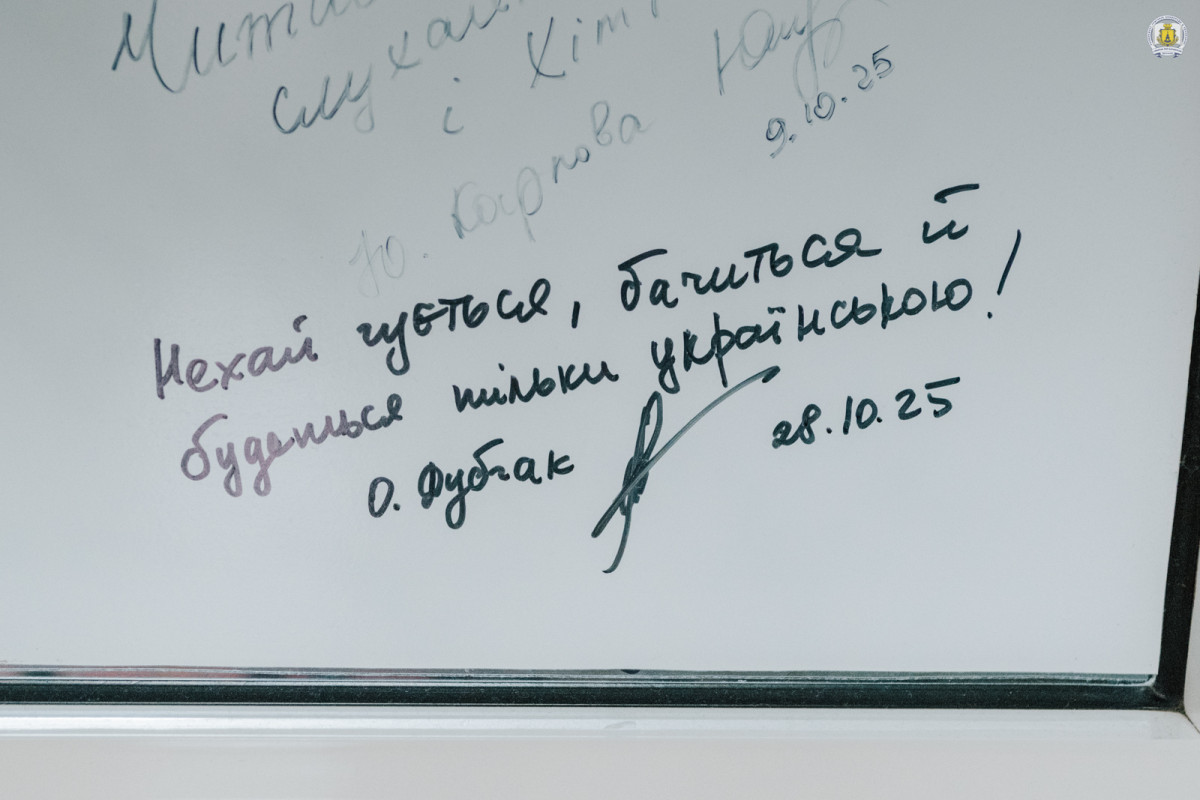 слухай
і Хіт
Ю. Карпова
9.10.25
Нехай чується, бачиться й
будеться тільки українською!
О. Дубчак
28.10.25